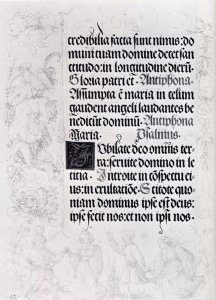 credibilia facta sunt nimis: do
mum tuam domine decet san
ctitudo: in longitudine dierū.
Gloria patri et. Antiphona
Assumpta ē maria in celum
gaudent angeli laudantes be
nedicūt dominū. Antiphona
Maria. Psalmus.
Jubilate deo omnis ter
ra: seruite domino in le
titia. Introite in cōspectu ei
us: in exultatiōe. Scitote quo
niam dominus ipse est deus:
ipse fecit nos: et non ipsi nos.